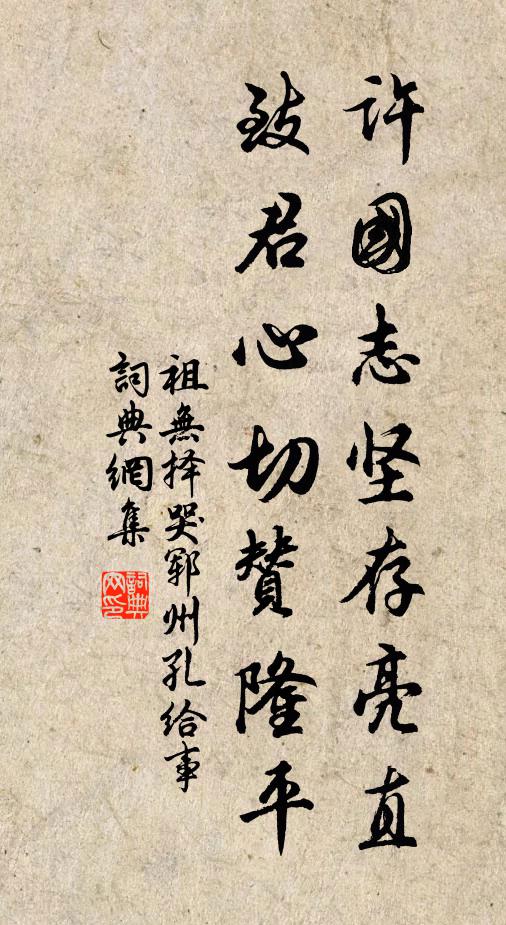 許國志坚存亮直
致君心切贊隆平
祖無择哭郓州孔给事
詞典網集
詞典網印